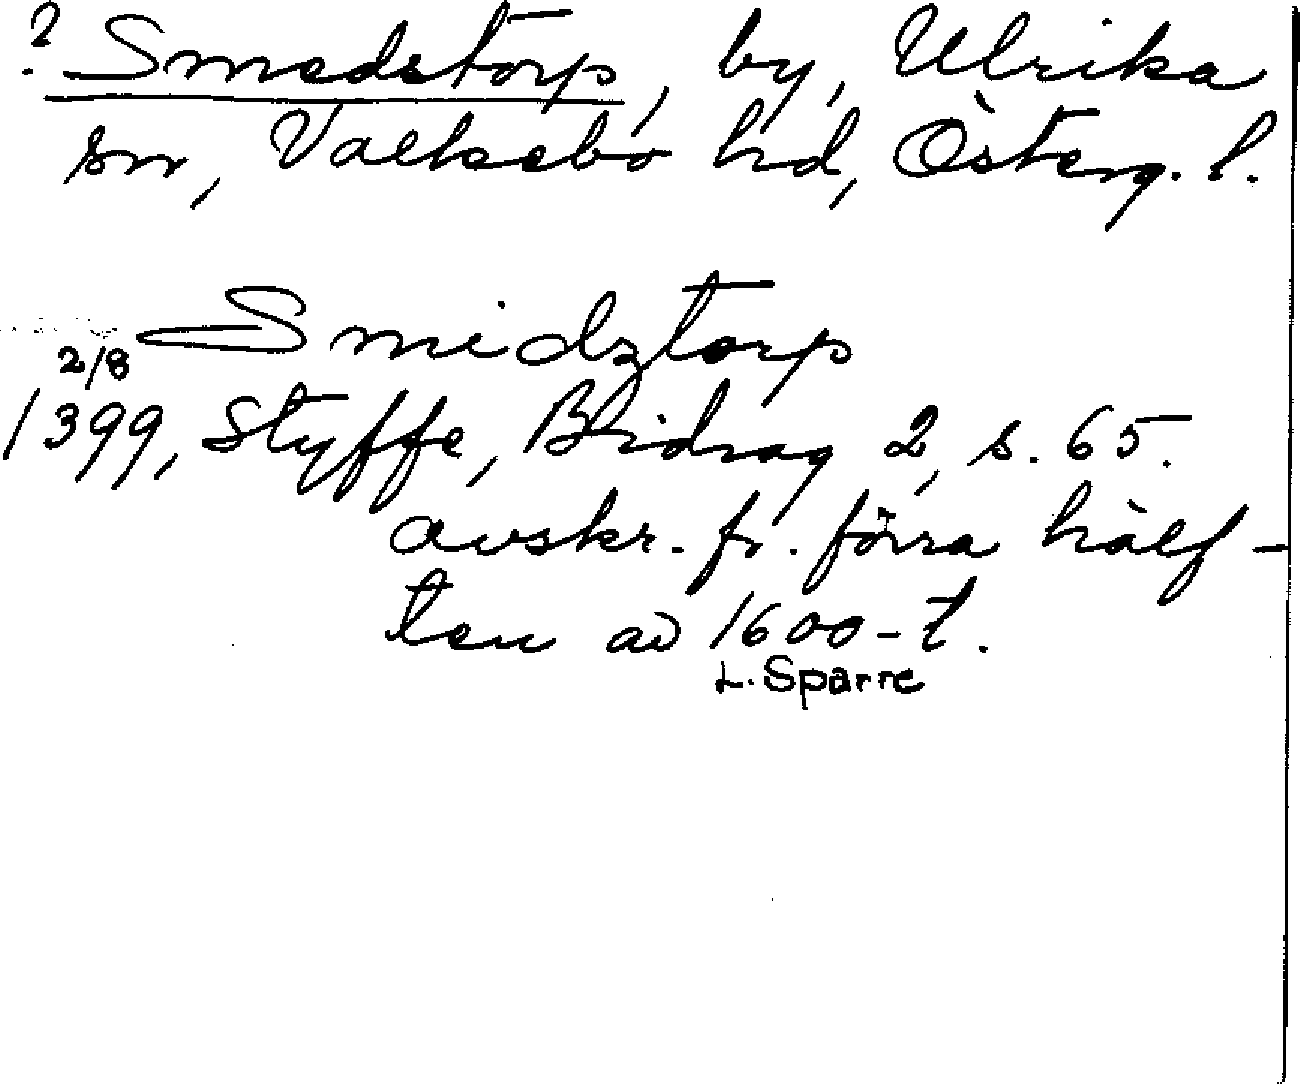 ? Smedstorp, by, Ulrika
sn, Valkebo hd, Österg. l.
Smidztorp
2/8
1399, Styffe, Bidrag 2, s. 65.
avskr. fr. förra hälf-
ten av 1600-t.
L. Sparre